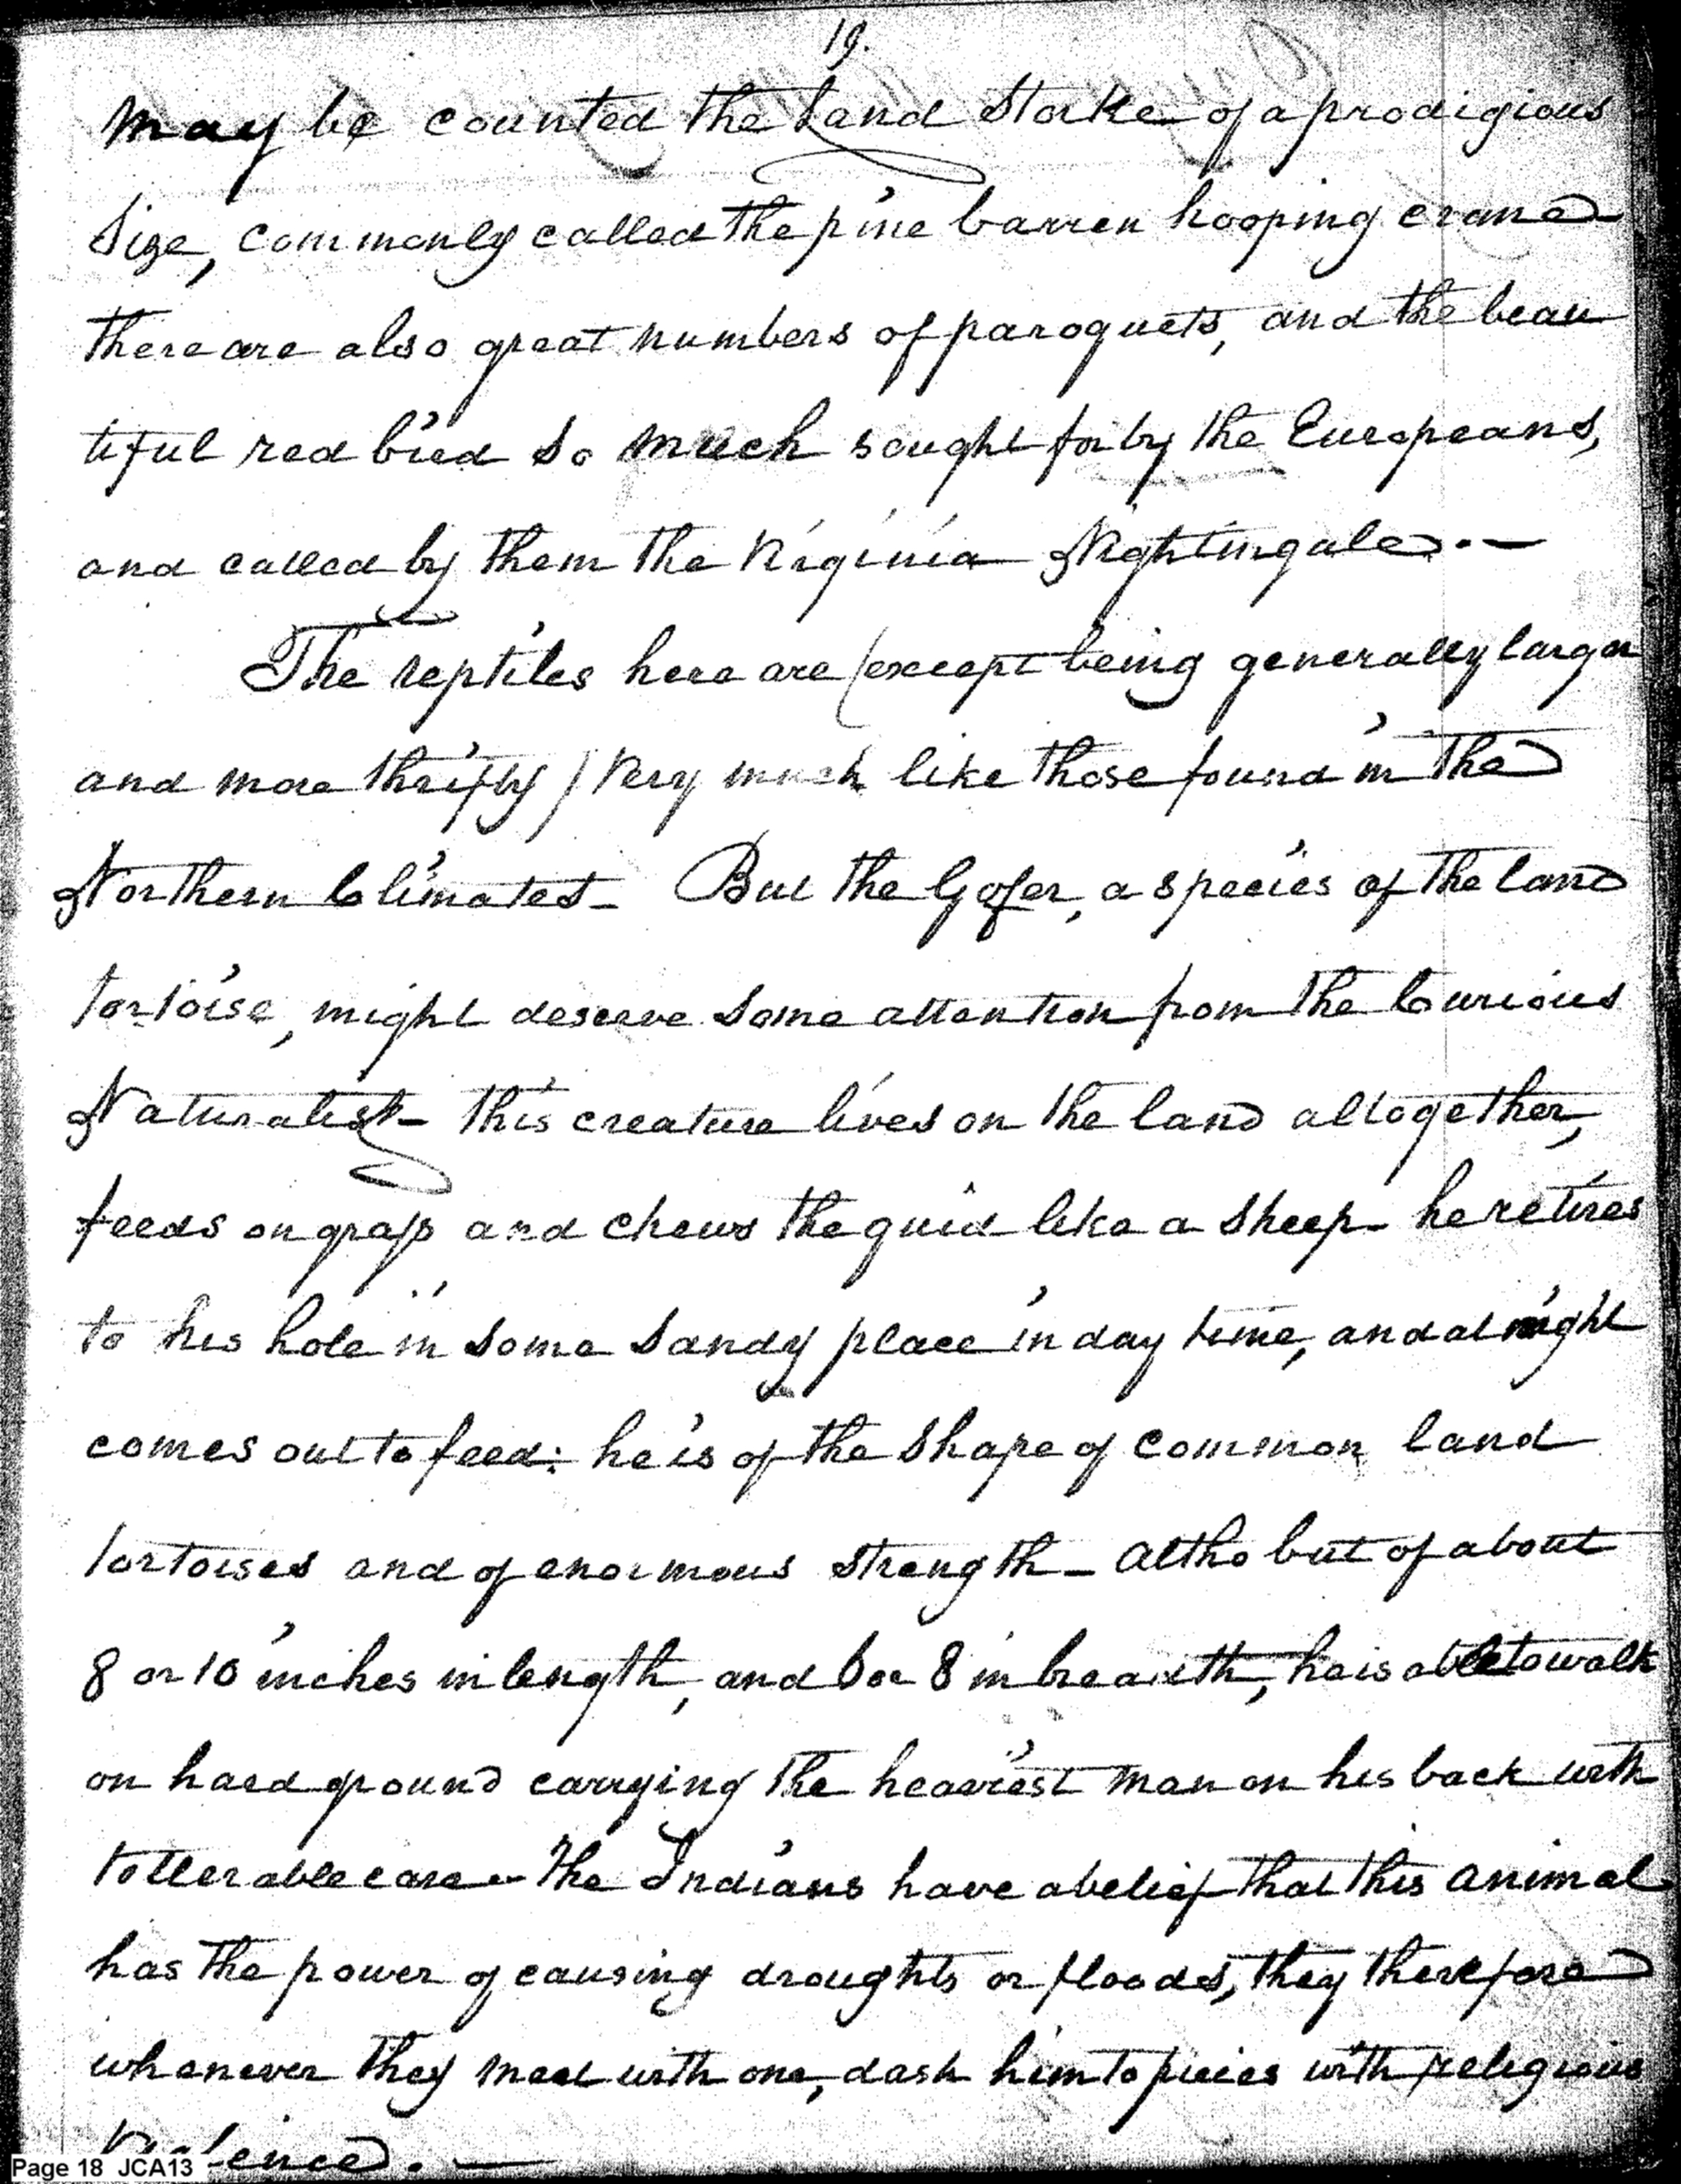 19.
may be counted the Land Storke of a prodigious
Size, commonly called the pine barren hooping crane
there are also great numbers of paroquets, and the beau
tiful red bird so much sought for by the Europeans,
and called by them the Virginia Nightingale. —
The reptiles here are (except being generally larger
and more thrifty) Very much like those found in the
Northern Climates — But the Gofer, a species of the land
tortoise, might deserve some attention from the Curious
Naturalist — this creature lives on the land altogether,
feeds on grass and chews the quid like a sheep — he retires
to his hole in some sandy place in day time, and at night
comes out to feed: he is of the shape of common land
tortoises and of enormous strength — altho but of about
8 or 10 inches in length, and 6 or 8 in breadth, he is able to walk
on hard ground carrying the heaviest man on his back with
tollerable ease — The Indians have a belief that this animal
has the power of causing droughts or floods, they therefore
whenever they meet with one, dash him to pieces with religious
Violence. —
Page 18 JCA13